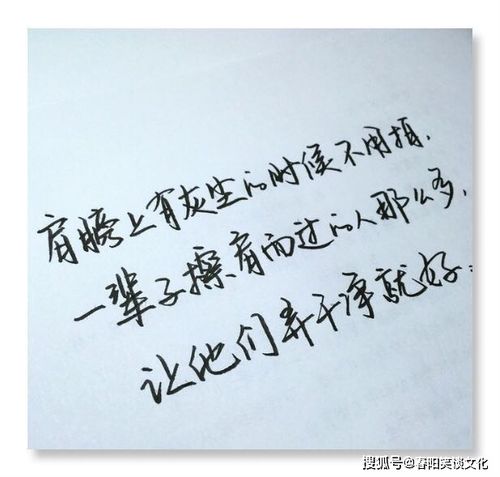 肩膀上有灰尘的时候不用拍.
一辈子擦肩而过的人那么多,
让他们弄干净就好.
搜狐号@春阳笑谈文化